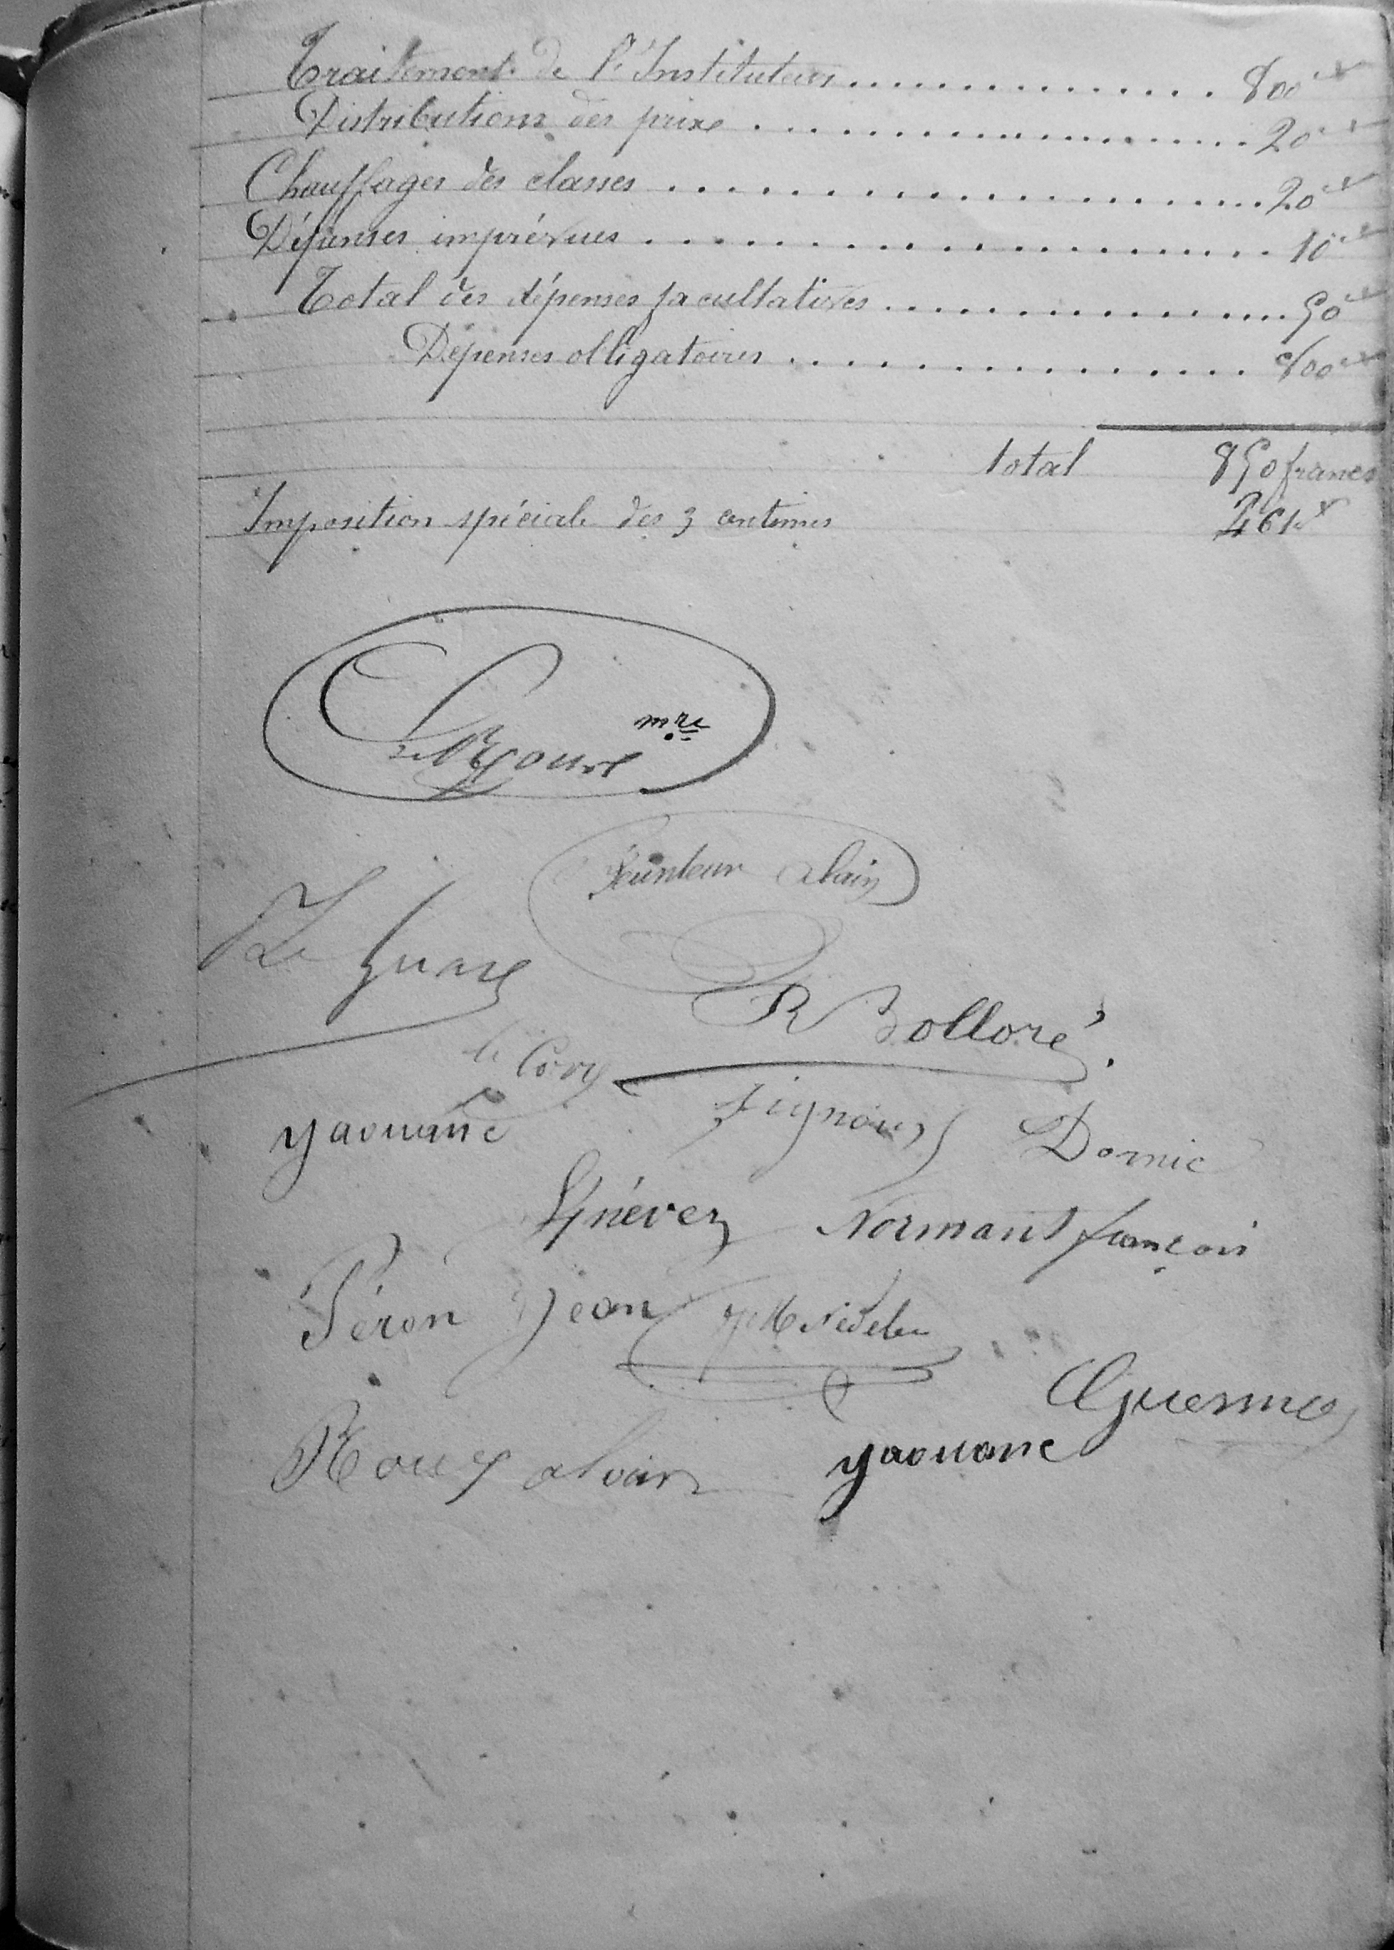 Traitement de l'Instituteur............... 800 "
Distributions des prixe.................... 20 "
Chauffages des classes..................... 20 "
Dépenses imprévues..................... 10 "
Total des dépenses facultatives................ 50 "
Dépenses obligatoires................ 800 "
total 850 francs
Imposition spéciale des 3 centimes 461 "
mre
alain
Le
R Bolloré
le Corre
yaouanc
Dornic
Quéven Normant françois
Péron Jean JM Nédelec
Guennec
Roux alain yaouanc